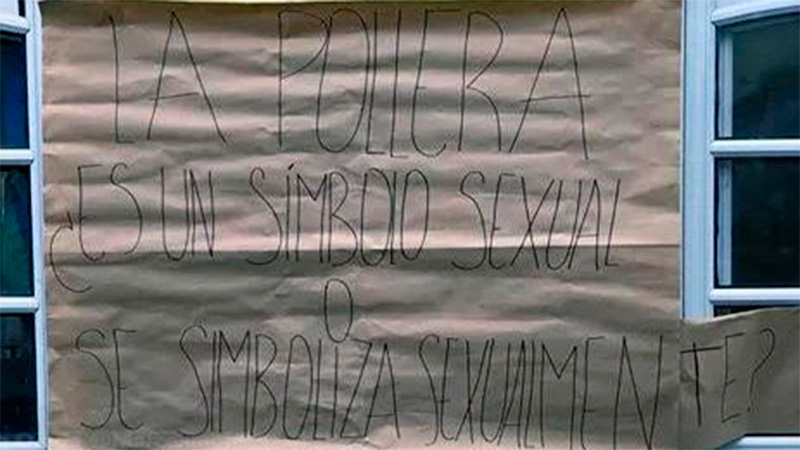 LA POLLERA
¿ES UN SÍMBOLO SEXUAL
O
SE SIMBOLIZA SEXUALMENTE?